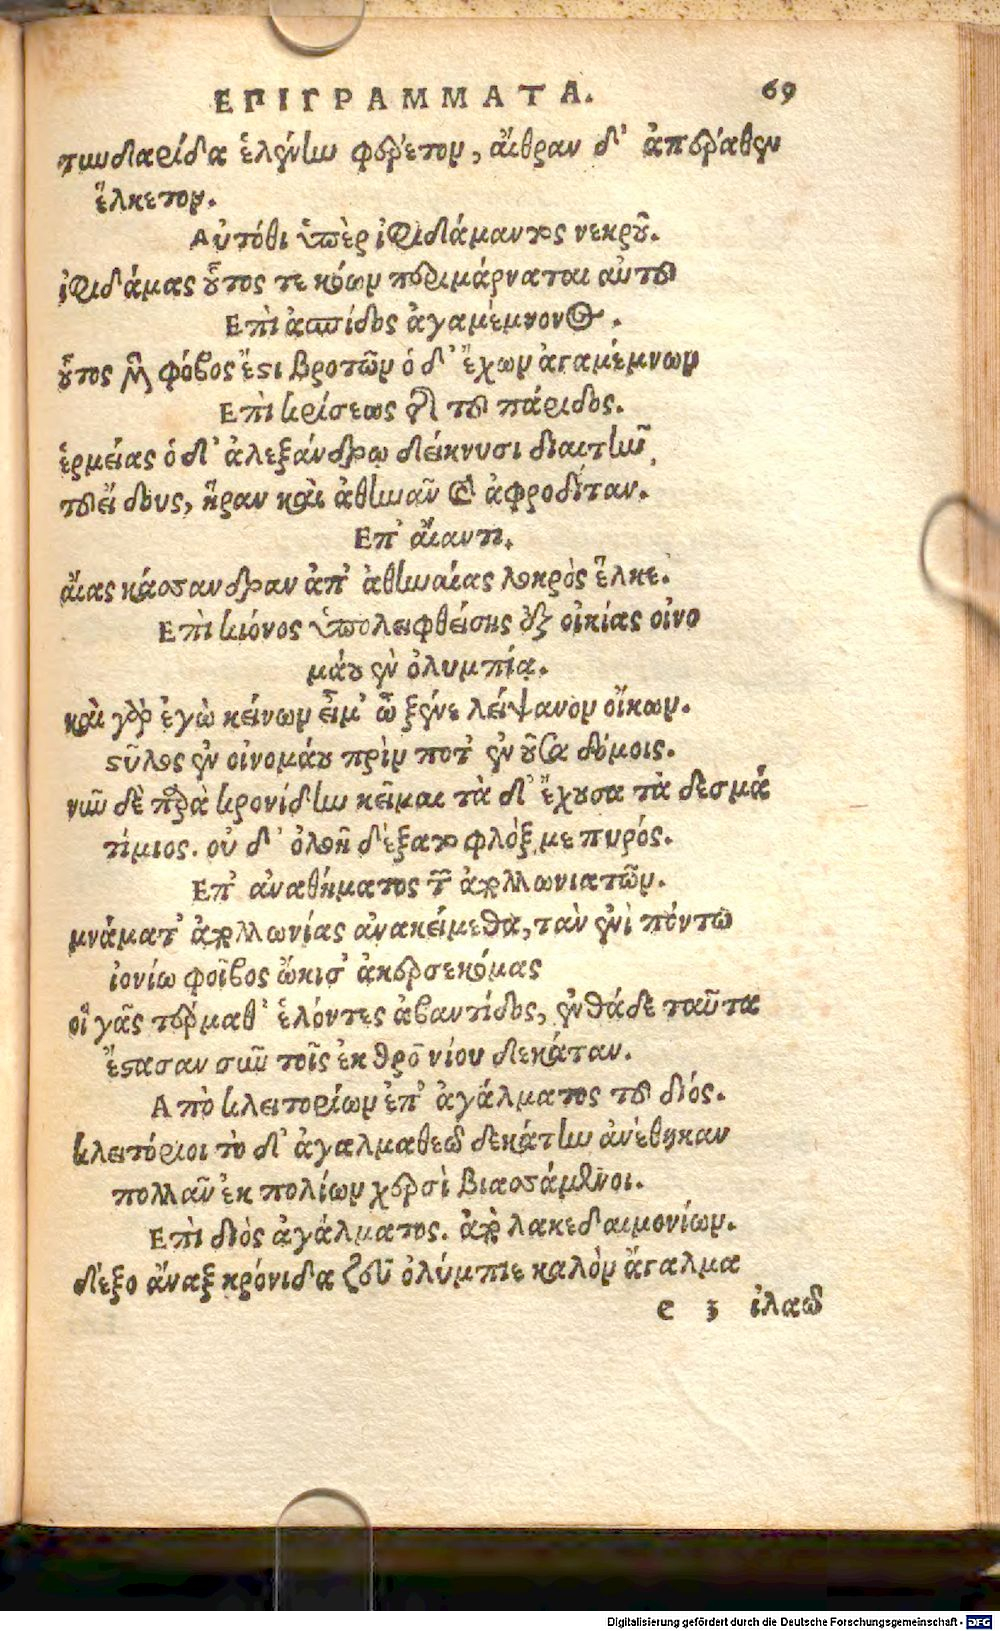 ΕΠΙΓΡΑΜΜΑΤΑ. 69
τυνδαρίδα ἑλένην φέρετον, αἴθραν δ' ἀπέραθεν
ἕλκετον.
Αὐτόθι ὑπὲρ ἰφιδάμαντος νεκροῦ.
ἰφιδάμας οὗτός τε κόων περιμάρναται αὐτοῦ
Επὶ ἀσπίδος ἀγαμέμνονος.
οὗτος μὲν φόβος ἔστι βροτῶν ὁ δ' ἔχων ἀγαμέμνων
Επὶ κρίσεως τῆς τοῦ πάριδος.
ἑρμείας ὁ δ' ἀλεξάνδρῳ δείκνυσι διαιτῆν
τοῦ εἴδους, ἥραν καὶ ἀθηνᾶν καὶ ἀφροδίταν.
Επ' αἴαντι.
αἴας κάσσανδραν ἀπ' ἀθηναίας λοκρὸς ἕλκε.
Επὶ κιόνος ὑπολειφθείσης ἐξ οἰκίας οἰνο
μάου ἐν ὀλυμπίᾳ.
καὶ γὰρ ἐγὼ κείνων εἶμ' ὦ ξένε λείψανον οἴκων.
στῦλος ἐν οἰνομάου πρὶν ποτ' ἐν οὖσα δόμοις.
νῦν δὲ παρὰ κρονίδην κεῖμαι τὰ δ' ἔχουσα τὰ δεσμὰ
τίμιος. οὐ δ' ὀλοὴ δέξατο φλόξ με πυρός.
Επ' ἀναθήματος τῶν ἀπολλωνιατῶν.
μνάματ' ἀπολλωνίας ἀνακείμεθα, τὰν ἐνὶ πόντῳ
ἰονίω φοῖβος ᾤκισ' ἀκερσεκόμας
οἳ γᾶς τέρμαθ' ἑλόντες ἀβαντίδος, ἐνθάδε ταῦτα
ἔστασαν σὺν τοῖς ἐκ θρονίου δεκάταν.
Απὸ κλειτορίων ἐπ' ἀγάλματος τοῦ διός.
κλειτόριοι τὸ δ' ἄγαλμα θεῷ δεκάτην ἀνέθηκαν
πολλᾶν ἐκ πολίων χερσὶ βιασσάμενοι.
Επὶ διὸς ἀγάλματος. ἀπὸ λακεδαιμονίων.
δέξο ἄναξ κρόνιδα ζεῦ ὀλύμπιε καλὸν ἄγαλμα
e 3 ἱλαῷ
Digitalisierung gefördert durch die Deutsche Forschungsgemeinschaft - DFG